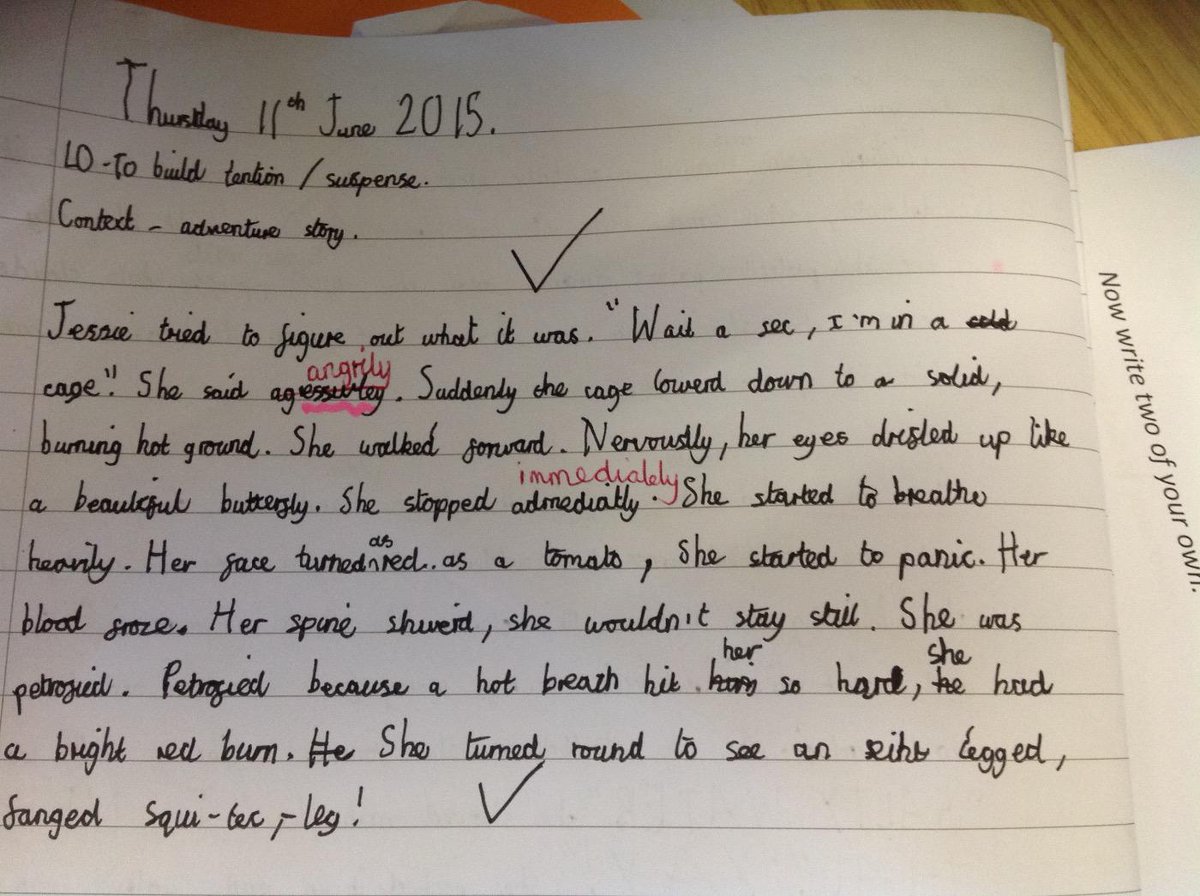 Thursday 11th June 2015.
LO - To build tention / suspense.
Context - adventure story.
Jessie tried to figure out what it was. "Wait a sec, I'm in a cold
angrily
cage". She said agessivley. Suddenly the cage lowerd down to a solid,
burning hot ground. She walked forward. Nervoustly, her eyes drifled up like
immediately
a beautiful butterfly. She stopped admediatly. She started to breathe
as
heavily. Her face turned red. as a tomato, She started to panic. Her
blood froze. Her spine shiverd, she wouldn't stay still. She was
her she
petrofied. Petrofied because a hot breath hit so hard, he had
a bright red burn. He She turned round to see an eiht legged,
fanged squi-tec,-leg!
Now write two of your own.